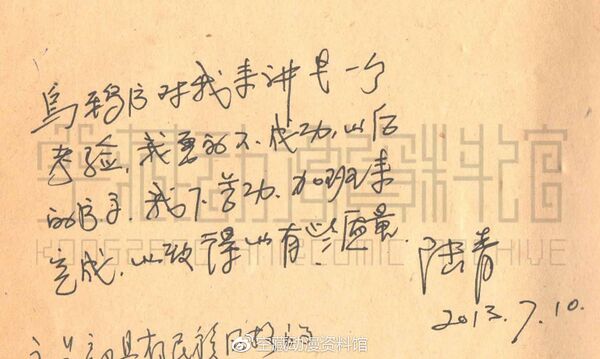 乌鸦片对我来讲是一个
考验,我更的不成功,以后
的片子,我下苦功,加班来
完成,以致得以有些质量.
陆青
2013.7.10.
具有民族
空藏动漫资料馆
KONGZANG ANIME&COMIC ARCHIVE
空藏动漫资料馆